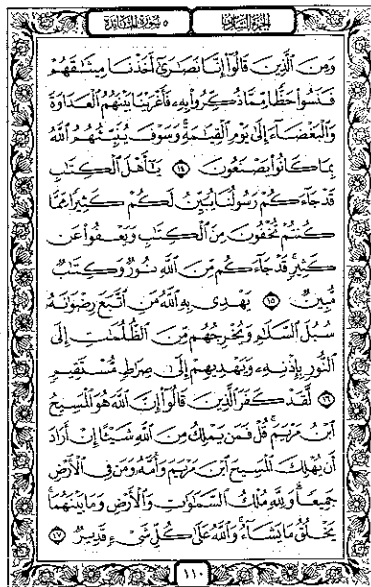 الجزء السادس ٥ سورة المائدة
وَمِنَ ٱلَّذِينَ قَالُوٓا۟ إِنَّا نَصَٰرَىٰٓ أَخَذْنَا مِيثَٰقَهُمْ
فَنَسُوا۟ حَظًّا مِّمَّا ذُكِّرُوا۟ بِهِۦ فَأَغْرَيْنَا بَيْنَهُمُ ٱلْعَدَاوَةَ
وَٱلْبَغْضَآءَ إِلَىٰ يَوْمِ ٱلْقِيَٰمَةِ ۚ وَسَوْفَ يُنَبِّئُهُمُ ٱللَّهُ
بِمَا كَانُوا۟ يَصْنَعُونَ ١٤ يَٰٓأَهْلَ ٱلْكِتَٰبِ
قَدْ جَآءَكُمْ رَسُولُنَا يُبَيِّنُ لَكُمْ كَثِيرًا مِّمَّا
كُنتُمْ تُخْفُونَ مِنَ ٱلْكِتَٰبِ وَيَعْفُوا۟ عَن
كَثِيرٍ ۚ قَدْ جَآءَكُم مِّنَ ٱللَّهِ نُورٌ وَكِتَٰبٌ
مُّبِينٌ ١٥ يَهْدِى بِهِ ٱللَّهُ مَنِ ٱتَّبَعَ رِضْوَٰنَهُۥ
سُبُلَ ٱلسَّلَٰمِ وَيُخْرِجُهُم مِّنَ ٱلظُّلُمَٰتِ إِلَى
ٱلنُّورِ بِإِذْنِهِۦ وَيَهْدِيهِمْ إِلَىٰ صِرَٰطٍ مُّسْتَقِيمٍ
١٦ لَّقَدْ كَفَرَ ٱلَّذِينَ قَالُوٓا۟ إِنَّ ٱللَّهَ هُوَ ٱلْمَسِيحُ
ٱبْنُ مَرْيَمَ ۚ قُلْ فَمَن يَمْلِكُ مِنَ ٱللَّهِ شَيْـًٔا إِنْ أَرَادَ
أَن يُهْلِكَ ٱلْمَسِيحَ ٱبْنَ مَرْيَمَ وَأُمَّهُۥ وَمَن فِى ٱلْأَرْضِ
جَمِيعًا ۗ وَلِلَّهِ مُلْكُ ٱلسَّمَٰوَٰتِ وَٱلْأَرْضِ وَمَا بَيْنَهُمَا ۚ
يَخْلُقُ مَا يَشَآءُ ۚ وَٱللَّهُ عَلَىٰ كُلِّ شَىْءٍ قَدِيرٌ ١٧
١١٠